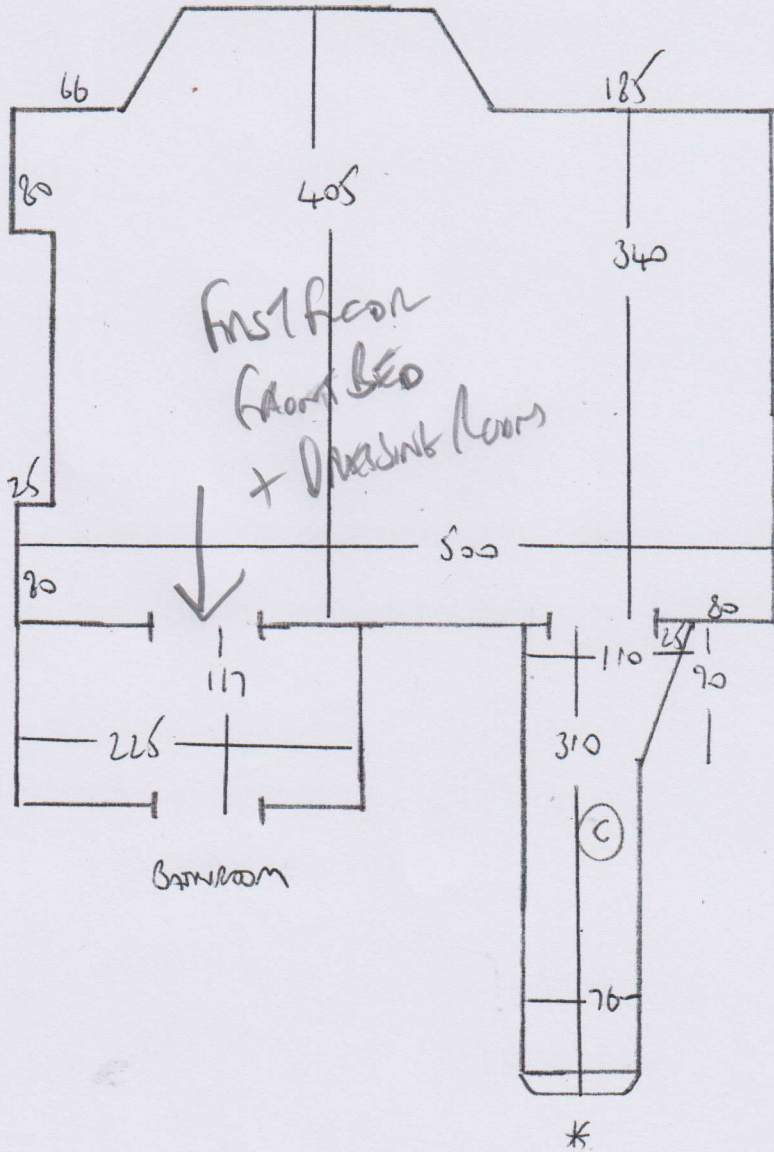 66
185
80
405
340
FIRST FLOOR
FRONT BED
+ DRESSING ROOM
25
500
80
80
25
110
90
117
225
310
C
BATHROOM
76
*